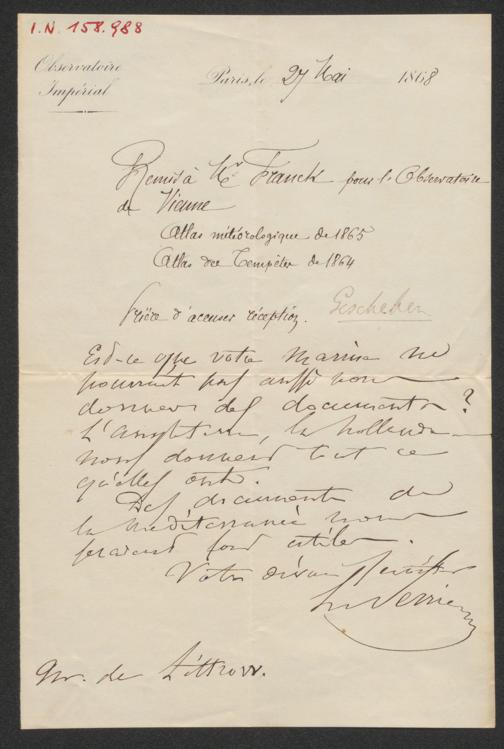 I.N. 158.988
Observatoire
Impérial
Paris, le 27 Mai 1868
Remis à Mr Franck pour l'Observatoire
de Vienne
Atlas météorologique de 1865
Atlas des Tempêtes de 1864
Prière d'accuser réception. Geschehen
Est-ce que votre marine ne
pourrait pas aussi nous
donner des documents ?
L'Angleterre, la Hollande
nous donnent tout ce
qu'elles ont.
Des documents de
la méditerranée nous
seraient fort utiles.
Votre
Le Verrier
Mr. de Littrow.